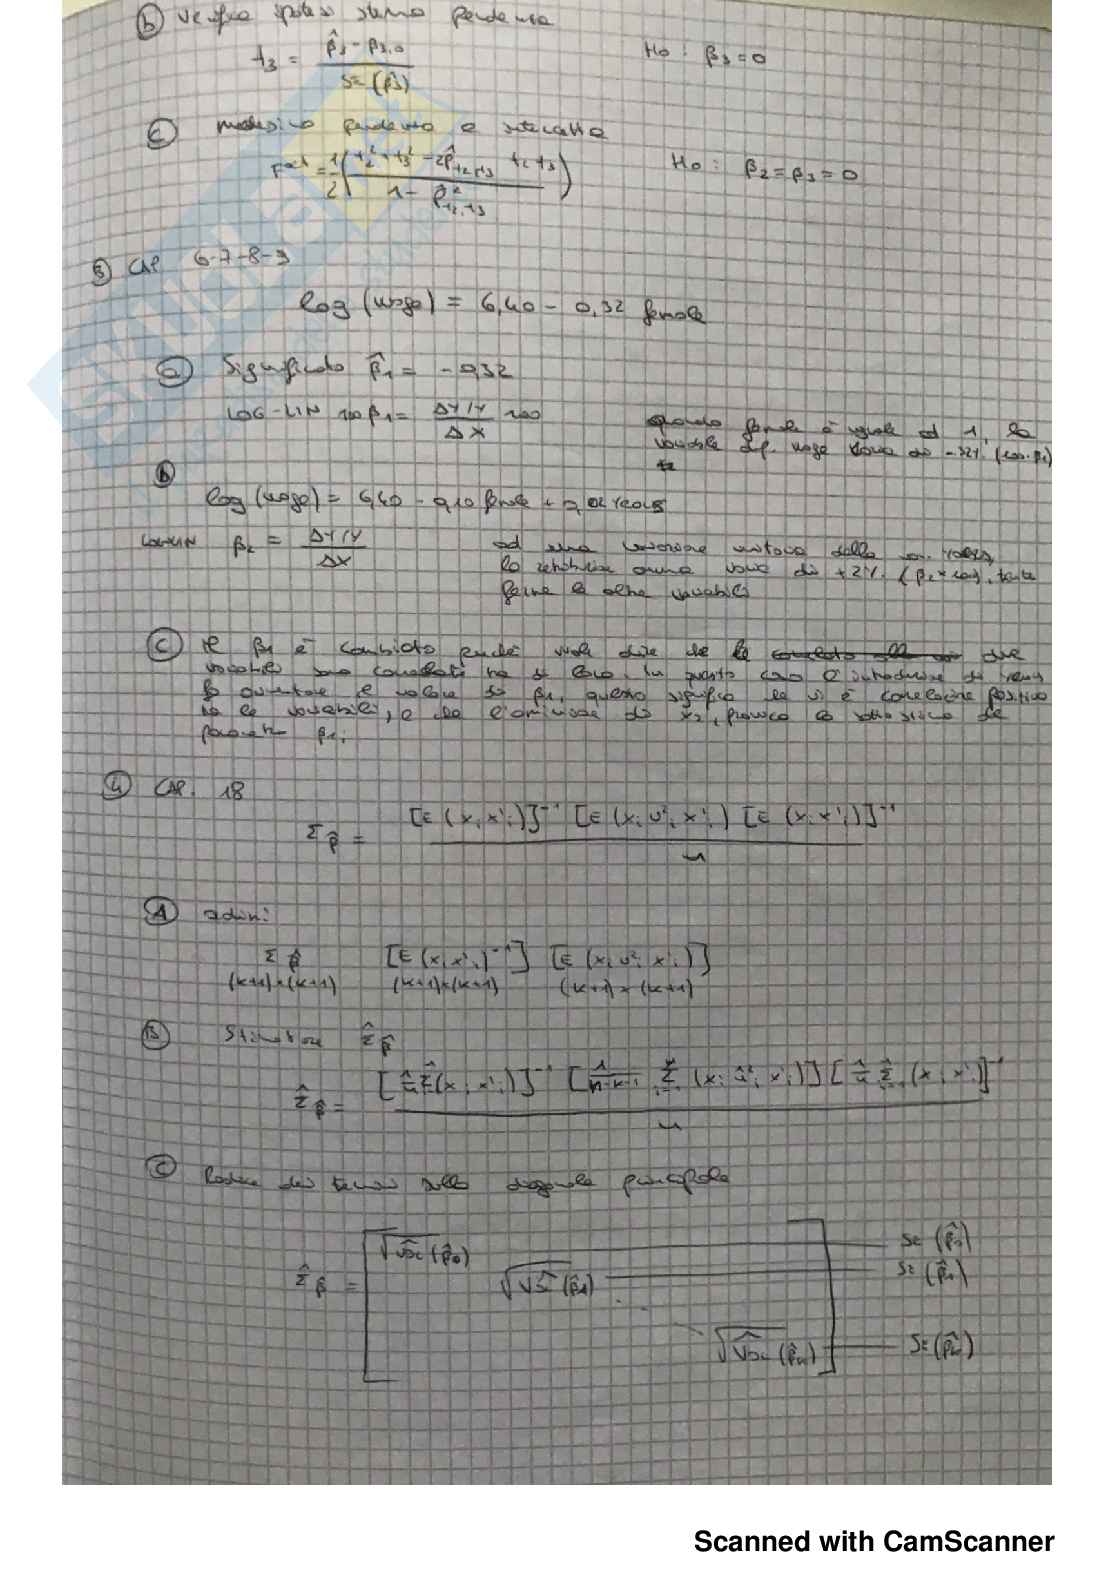 b) Verifica ipotesi stessa pendenza
t3 = (β̂3 - β3,0) / SE(β̂3)   H0 : β3 = 0
c) medesima pendenza e intercetta
F act = 1/2 ( (t2² + t3² - 2ρ̂t2,t3 t2 t3) / (1 - ρ̂²t2,t3) )   H0 : β2 = β3 = 0
3) CAP 6-7-8-9
log (wage) = 6,40 - 0,32 female
a) Significato β̂1 = -0,32
LOG-LIN 100 β1 = (ΔY/Y) / ΔX 100
quando female è uguale ad 1, la
variabile dip. wage varia di -32% (100·β1)
b)
log (wage) = 6,40 - 0,10 female + 0,02 years
LOG-LIN β2 = (ΔY/Y) / ΔX
ad una variazione unitaria della var. years,
la retribuzione varia di +2% (β2 × 100), tenute
ferme le altre variabili
c) β1 è cambiato perché vuol dire che le due
variabili sono correlate tra di loro. In questo caso l'introduzione di years
fa aumentare il valore di β1, questo significa che vi è correlazione positiva
tra le variabili, e che l'omissione di x2, provoca la sottostima del
parametro β1;
4) CAP. 18
Σβ̂ = [E (xi x'i)]⁻¹ [E (xi u²i x'i)] [E (xi x'i)]⁻¹ / n
A) 
Σβ̂   [E (xi x'i)⁻¹]   [E (xi u²i x'i)]
(k+1)×(k+1)   (k+1)×(k+1)   (k+1)×(k+1)
B) Stimatore Σ̂β̂
Σ̂β̂ = [1/n Σ (xi x'i)]⁻¹ [1/(n-k-1) Σ (xi û²i x'i)] [1/n Σ (xi x'i)]⁻¹ / n
C) Radice dei termini sulla diagonale principale
√Var(β̂0)   SE (β̂0)
Σ̂β̂ =   √Var(β̂1)   SE (β̂1)
√Var(β̂k)   SE (β̂k)
Scanned with CamScanner